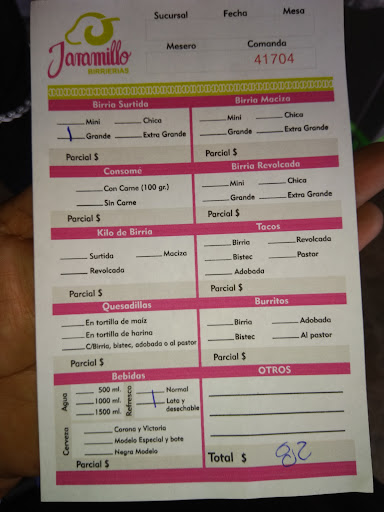 Jaramillo
BIRRIERIAS
Sucursal Fecha Mesa
Mesero Comanda
41704
Birria Surtida
Mini Chica
1 Grande Extra Grande
Parcial $
Birria Maciza
Mini Chica
Grande Extra Grande
Parcial $
Consomé
Con Carne (100 gr.)
Sin Carne
Parcial $
Birria Revolcada
Mini Chica
Grande Extra Grande
Parcial $
Kilo de Birria
Surtida Maciza
Revolcada
Parcial $
Tacos
Birria Revolcada
Bistec Pastor
Adobada
Parcial $
Quesadillas
En tortilla de maíz
En tortilla de harina
C/Birria, bistec, adobada o al pastor
Parcial $
Burritos
Birria Adobada
Bistec Al pastor
Parcial $
Bebidas
Agua
500 ml.
1000 ml.
1500 ml.
Refresco
Normal
1 Lata y
desechable
Cerveza
Corona y Victoria
Modelo Especial y bote
Negra Modelo
Parcial $
OTROS
Total $